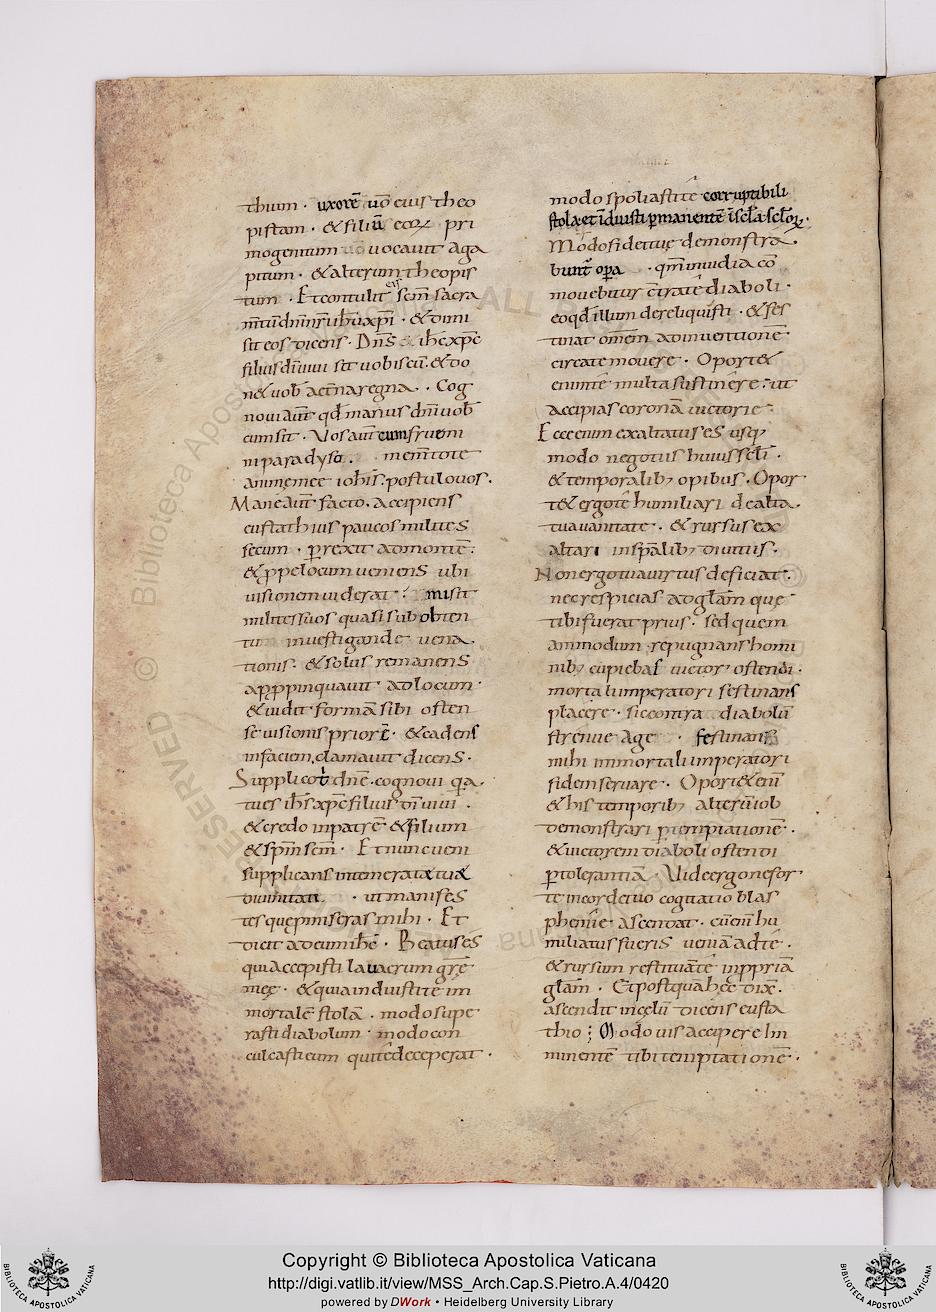 thium · uxorē uō eius theo
pistam · & filiū eoꝝ · pri
mogenitum uocauit aga
pitum · & alterum theopis
tum · Et contulit eis scm̄ sacra
m̄tū dn̄i nr̄i ih̄u xp̄i · & dimi
sit eos dicens · Dn̄s ih̄c xp̄c
filius dī uiui sit uobiscū · & do
n& uob̄ aet̄na regna · Cog
noui aūt qd̄ manus dn̄i uob̄
cum sit · Vos aūt cum fruemi
ni paradyso · mem̄tote
animę meę ioh̄is · postulo uos ·
Mane aūt facto · accipiens
eustathius paucos milites
secum · ꝑrexit ad montē :
& ꝓpe locum ueniens ubi
uisionem uiderat · misit
milites suos quasi sub obten
tu inuestigande uena
tionis · & solus remanens
appropinquauit ad locum ·
& uidit formā sibi osten
se uisionis priorē · & cadens
in faciem, clamauit dicens ·
Supplico t̄ dn̄e · cognoui q̄a
tu es ih̄s xp̄c filius dī uiui ·
& credo in patrē & filium
& sp̄m scm̄ · Et nunc ueni
supplicans intemeratȩ tuȩ
diuinitati · ut manifes
tes que ꝓmiseras mihi · Et
dicit ad eum ih̄c · Beatus es
qui accepisti lauacrum gr̄ę
meę · & quia induisti te im
mortalē stolā · modo supe
rasti diabolum · modo con
culcasti eum qui te deceperat ·
modo spoliasti te corruptibili
stola et īduisti ꝑmanentē ī scl̄a scl̄oꝝ ·
Modo fidei tuę demonstra
bunt̄ oꝑa · qm̄ inuidia cō
mouebitur c̄tra tē diaboli ·
eo qd̄ illum dereliquisti · & fes
tinat om̄em adinuentionē
circa te mouere · Oport&
enim tē multa sustinere · ut
accipias coronā uictorię ·
Ecce enim exaltatus es usq;
modo negotiis huius scl̄i ·
& temporalib; opibus · Opor
t& ergo tē humiliari de alta
tua uanitate · & rursus ex
altari in sp̄alib; diuitiis ·
Non ergo tua uirtus deficiat ·
nec respicias ad gl̄am quę
tibi fuerat prius · sed quem
ammodum repugnans homi
nib; cupiebas uictor ostendi ·
mortali imperatori festinans
placere · sic contra diabolū
strenue age · festinans
mihi immortali imperatori
fidem seruare · Oport& enī
& his temporib; alterū iob
demonstrari ꝑ temptationē ·
& uictorem diaboli ostendi
ꝑ tolerantiā · Vide ergo ne for
te in corde tuo cogitatio blas
phemię ascendat · cū enī hu
miliatus fueris ueniā ad tē ·
& rursum restituā tē in ꝓpriā
gl̄am · Et postqua hęc dix̄ ·
ascendit in cęlū dicens eusta
thio ; Modo uis accipere im
minentē tibi temptationē ·
ALL
© Biblioteca Apostolica Vaticana
RESERVED
Copyright © Biblioteca Apostolica Vaticana
http://digi.vatlib.it/view/MSS_Arch.Cap.S.Pietro.A.4/0420
powered by DWork • Heidelberg University Library
BIBLIOTECA APOSTOLICA VATICANA
BIBLIOTECA APOSTOLICA VATICANA